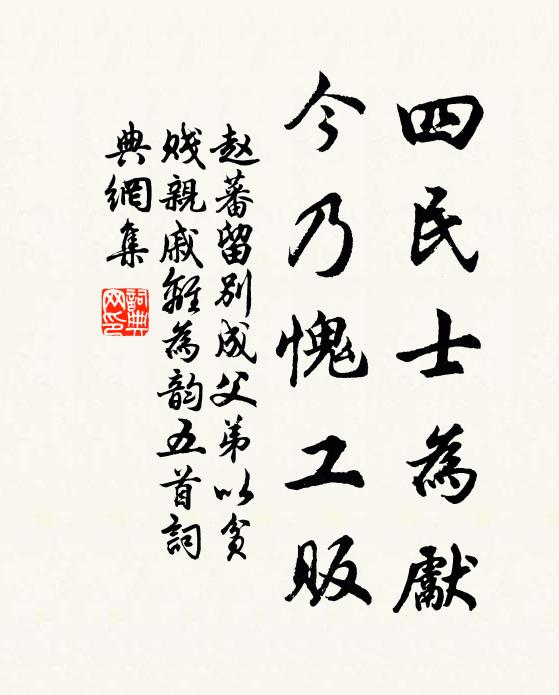 四民士為獻
今乃愧工販
赵蕃留别成父弟以贫
贱親戚離為韵五首詞
典網集
詞典网印